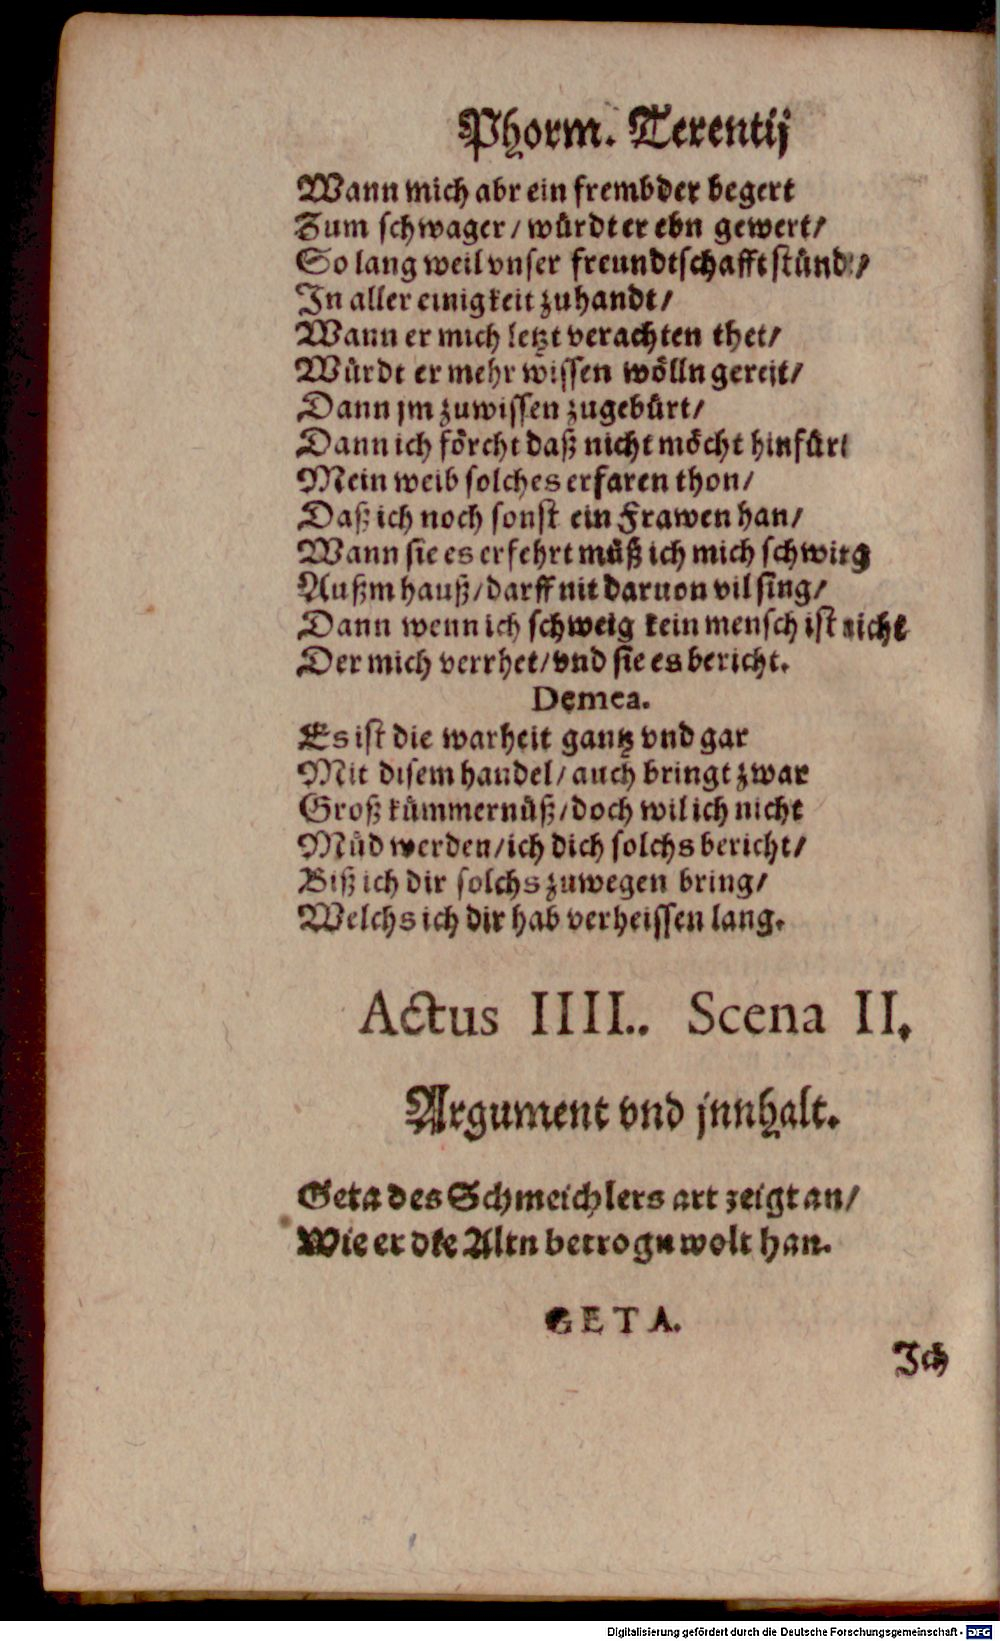 Phorm. Terentij
Wann mich abr ein frembder begert
Zum schwager / würdt er ebn gewert/
So lang weil vnser freundtschafft stünd/
In aller einigkeit zuhandt/
Wann er mich letzt verachten thet/
Würdt er mehr wissen wölln gereit/
Dann jm zuwissen zugebürt/
Dann ich förcht daß nicht möcht hinfürt
Mein weib solches erfaren thon/
Daß ich noch sonst ein Frawen han/
Wann sie es erfehrt müß ich mich schwing
Außm hauß/darff nit daruon vil sing/
Dann wenn ich schweig kein mensch ist nicht
Der mich verrhet/vnd sie es bericht.
Demea.
Es ist die warheit gantz vnd gar
Mit disem handel/auch bringt zwar
Groß kümmernüß/doch wil ich nicht
Müd werden/ich dich solchs bericht/
Biß ich dir solchs zuwegen bring/
Welchs ich dir hab verheissen lang.
Actus IIII.. Scena II.
Argument vnd jnnhalt.
Geta des Schmeichlers art zeigt an/
Wie er die Altn betrogn wolt han.
GETA.
Ich
Digitalisierung gefördert durch die Deutsche Forschungsgemeinschaft - DFG